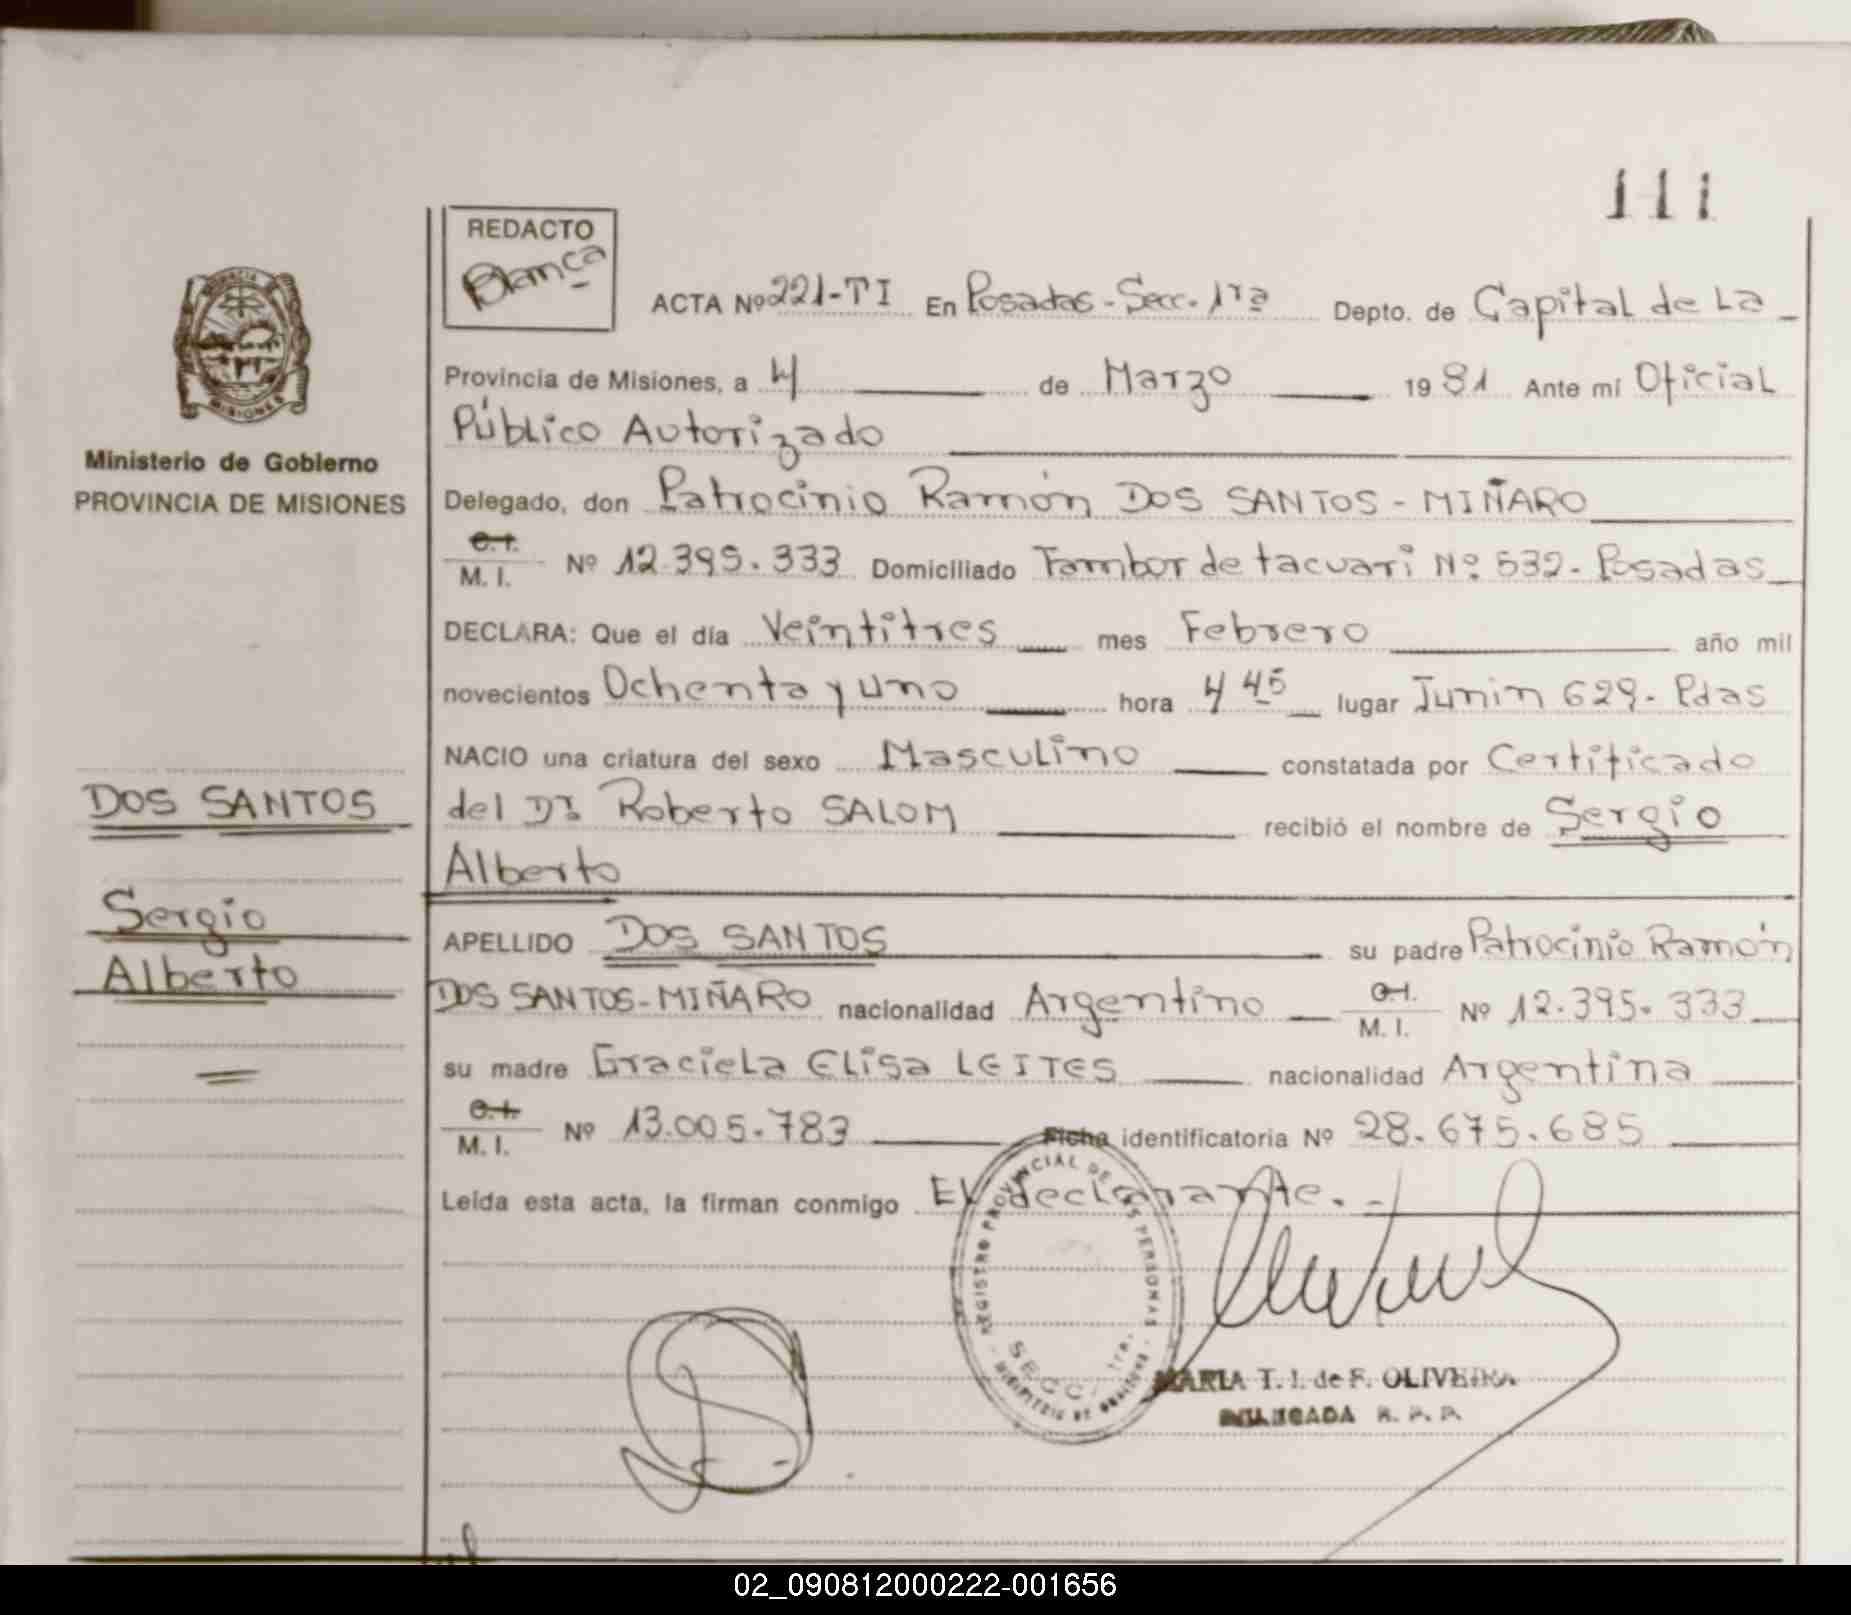 111
REDACTO
Blanca
ACTA Nº 221-TI En Posadas-Secc. 1ra Depto. de Capital de La
Provincia de Misiones, a 4 de Marzo 1981 Ante mí Oficial
Público Autorizado
Ministerio de Gobierno
PROVINCIA DE MISIONES
Delegado, don Patrocinio Ramón DOS SANTOS - MIÑARO
C.I.
M. I. Nº 12.395.333 Domiciliado Tambor de tacuari Nº 532- Posadas
DECLARA: Que el día Veintitres mes Febrero año mil
novecientos Ochenta y uno hora 4 45 lugar Junin 629- Pdas
NACIO una criatura del sexo Masculino constatada por Certificado
del Dr. Roberto SALOM recibió el nombre de Sergio
Alberto
DOS SANTOS
Sergio
Alberto
APELLIDO DOS SANTOS su padre Patrocinio Ramón
DOS SANTOS-MIÑARO nacionalidad Argentino C.I. M. I. Nº 12.395.333
su madre Graciela Elisa LEITES nacionalidad Argentina
C.I.
M. I. Nº 13.005.783 Ficha identificatoria Nº 28.675.685
Leída esta acta, la firman conmigo El declarante.-
REGISTRO PROVINCIAL DE LAS PERSONAS
SECC. 1ra.
MINISTERIO DE GOBIERNO
MARIA T. I. de F. OLIVEIRA
DELEGADA R. P. P.
02_090812000222-001656